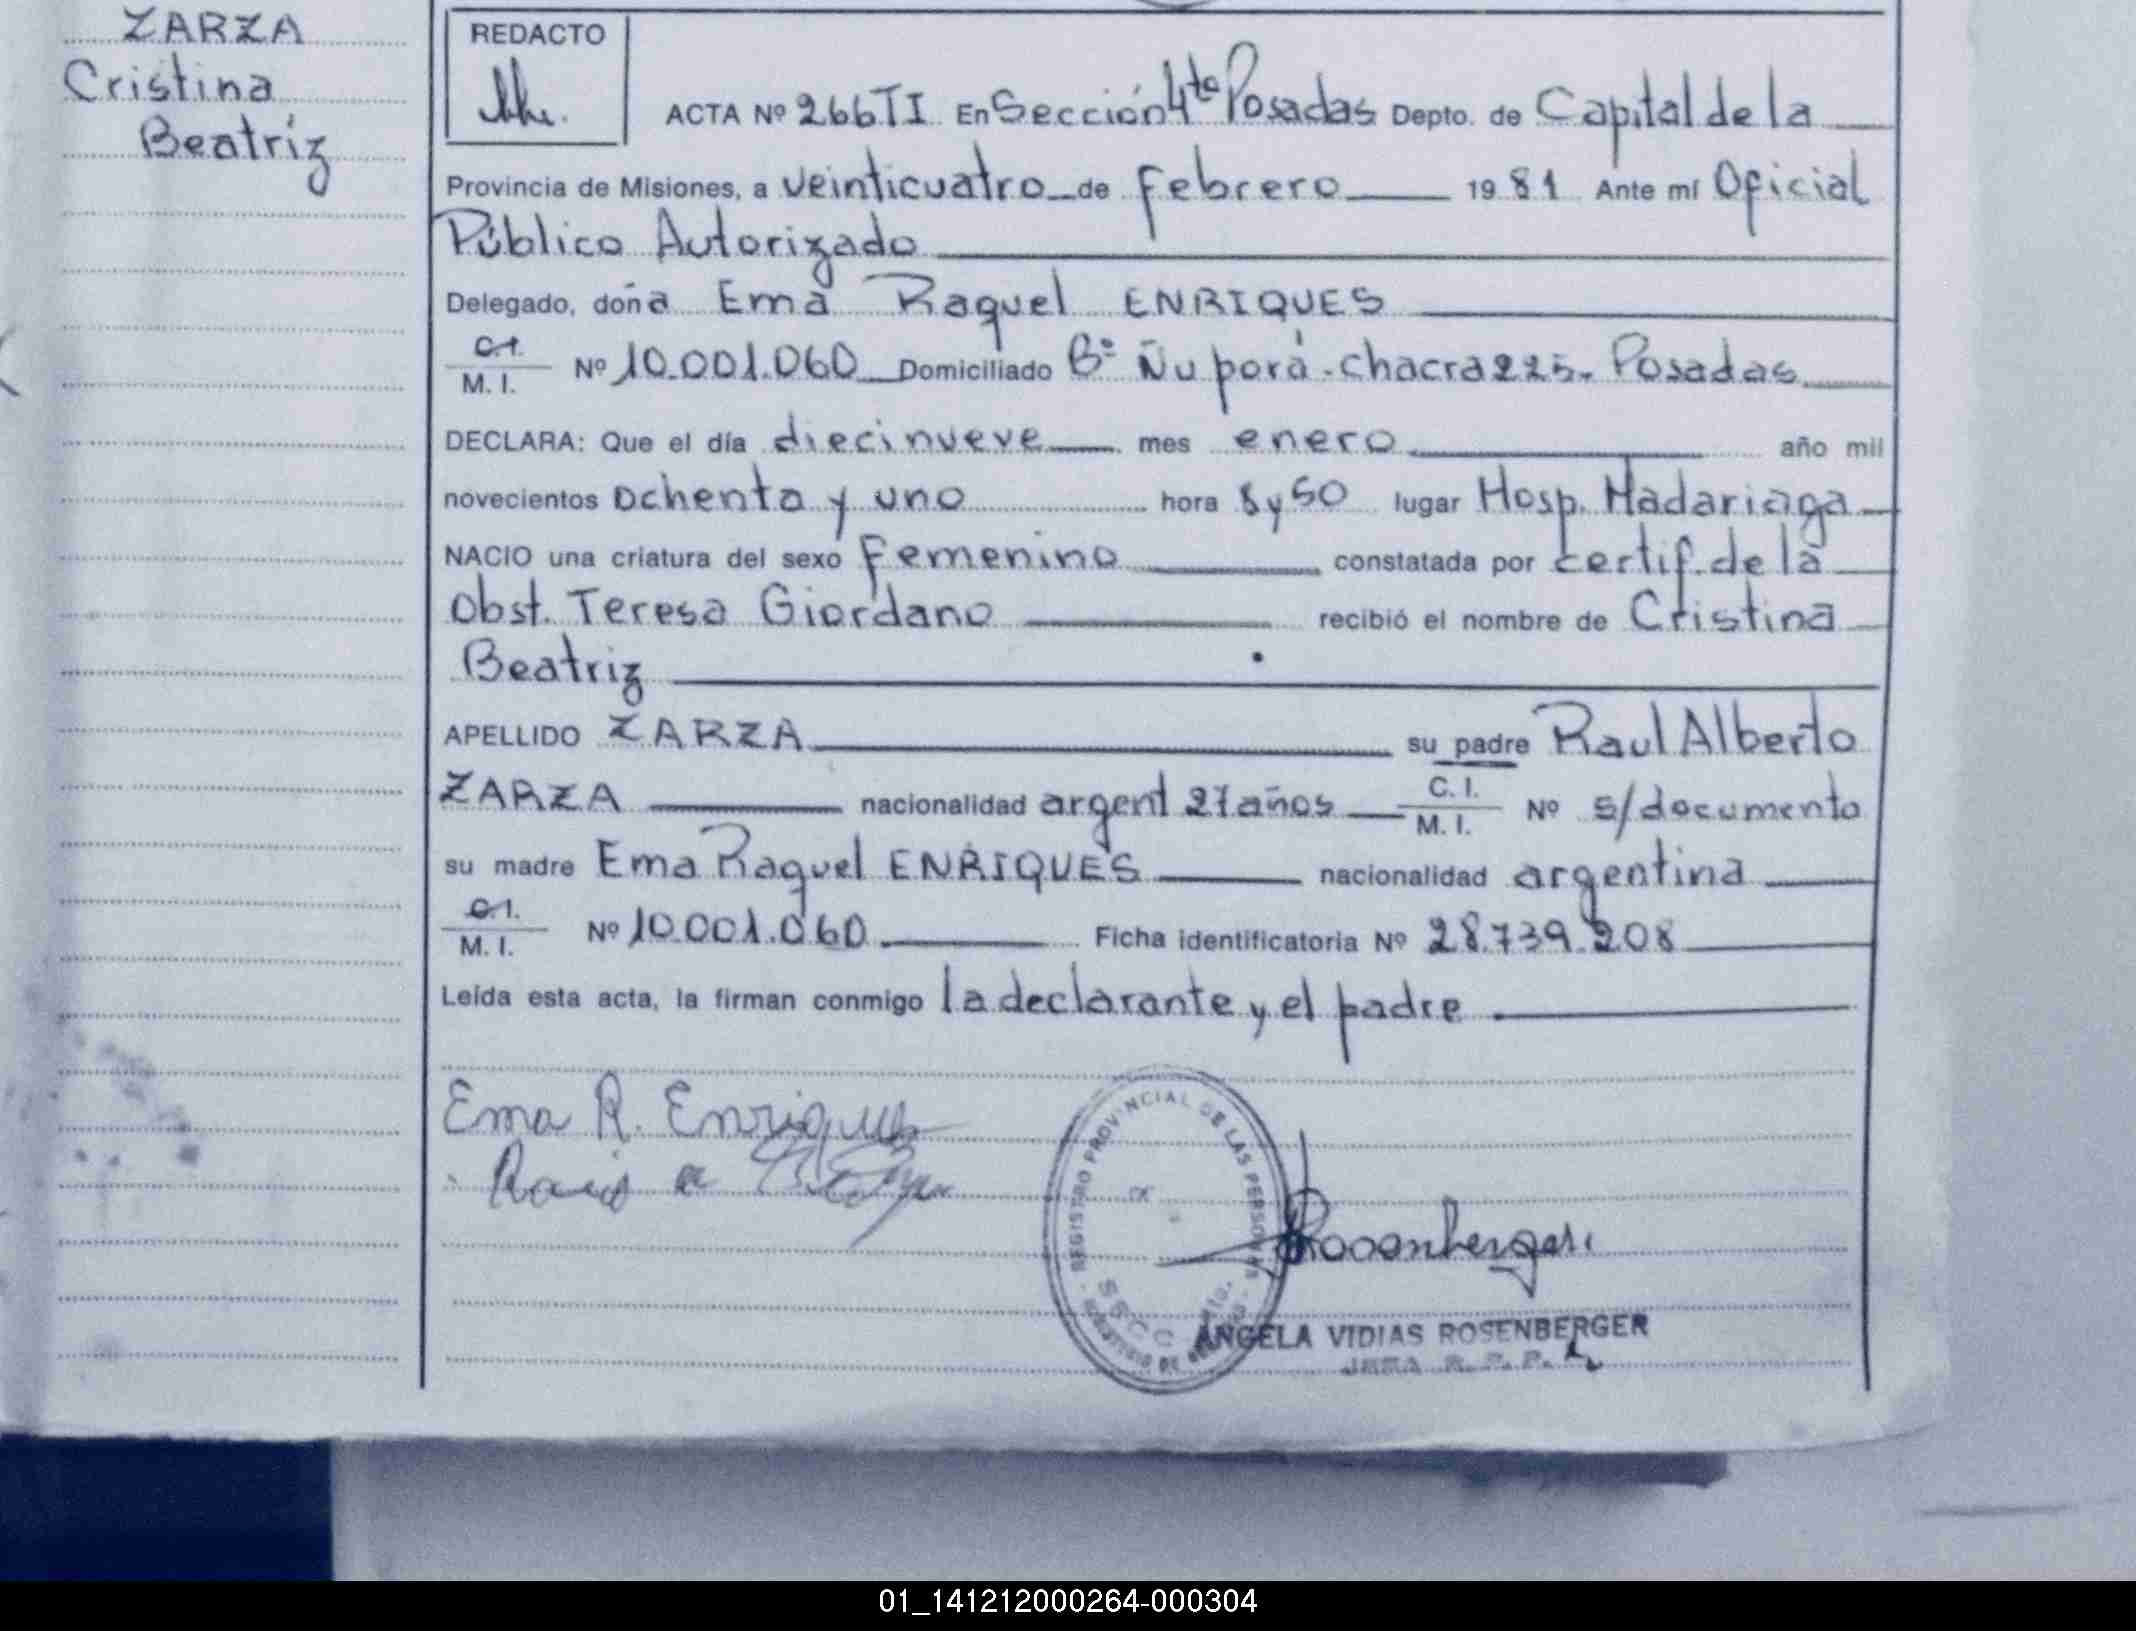 ZARZA
Cristina
Beatriz
REDACTO
ACTA Nº 266 TI En Sección 4ta Posadas Depto. de Capital de la
Provincia de Misiones, a veinticuatro de Febrero 1981 Ante mí Oficial
Público Autorizado
Delegado, doña Ema Raquel ENRIQUES
C.I.
M. I. Nº 10.001.060 Domiciliado Bº Ñu porá - chacra 225. Posadas
DECLARA: Que el día diecinueve mes enero año mil
novecientos ochenta y uno hora 8 y 50 lugar Hosp. Madariaga
NACIO una criatura del sexo Femenino constatada por certif. de la
Obst. Teresa Giordano recibió el nombre de Cristina
Beatriz
APELLIDO ZARZA su padre Raul Alberto
ZARZA nacionalidad argent 27 años C. I.
M. I. Nº s/documento
su madre Ema Raquel ENRIQUES nacionalidad argentina
C.I.
M. I. Nº 10.001.060 Ficha identificatoria Nº 28.739.208
Leída esta acta, la firman conmigo la declarante y el padre
Ema R. Enriques
REGISTRO PROVINCIAL DE LAS PERSONAS
SECC
Rosenberger
ANGELA VIDIAS ROSENBERGER
JEFA R. P. P.
01_141212000264-000304